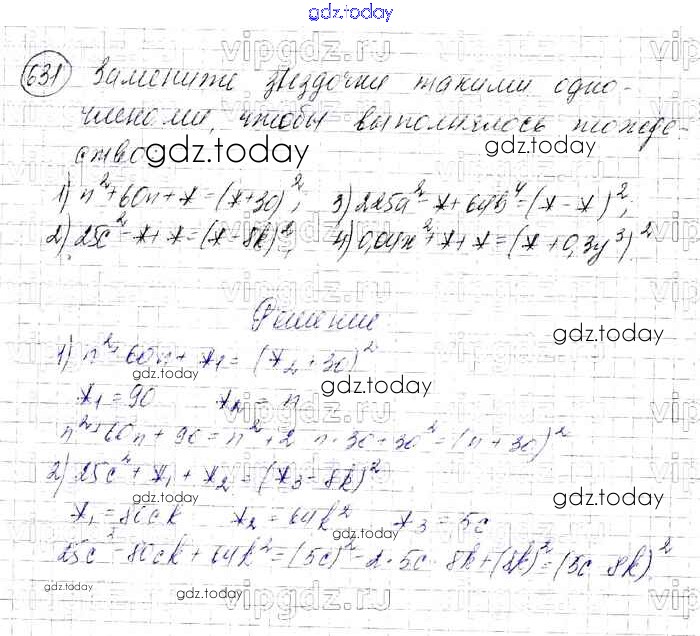 gdz.today
631 Замените звездочки такими одно-
членами, чтобы выполнялось тожде-
ство: gdz.today gdz.today
1) n²+60n+*=(*+30)²; 3) 225a²-*+64b⁴=(*-*)²;
2) 25c²-*+*=(*-8k)²; 4) 0,04x²+*+*=(*+0,3y³)²
Решение gdz.today
1) n²+60n+*₁=(*₂+30)²
gdz.today gdz.today
*₁=90 *₂=n
n²+60n+90=n²+2·n·30+30²=(n+30)²
2) 25c²+*₁+*₂=(*₃-8k)²
gdz.today gdz.today
*₁=80ck *₂=64k² *₃=5c
25c²-80ck+64k²=(5c)²-2·5c·8k+(8k)²=(5c-8k)²
gdz.today gdz.today
gdz.today